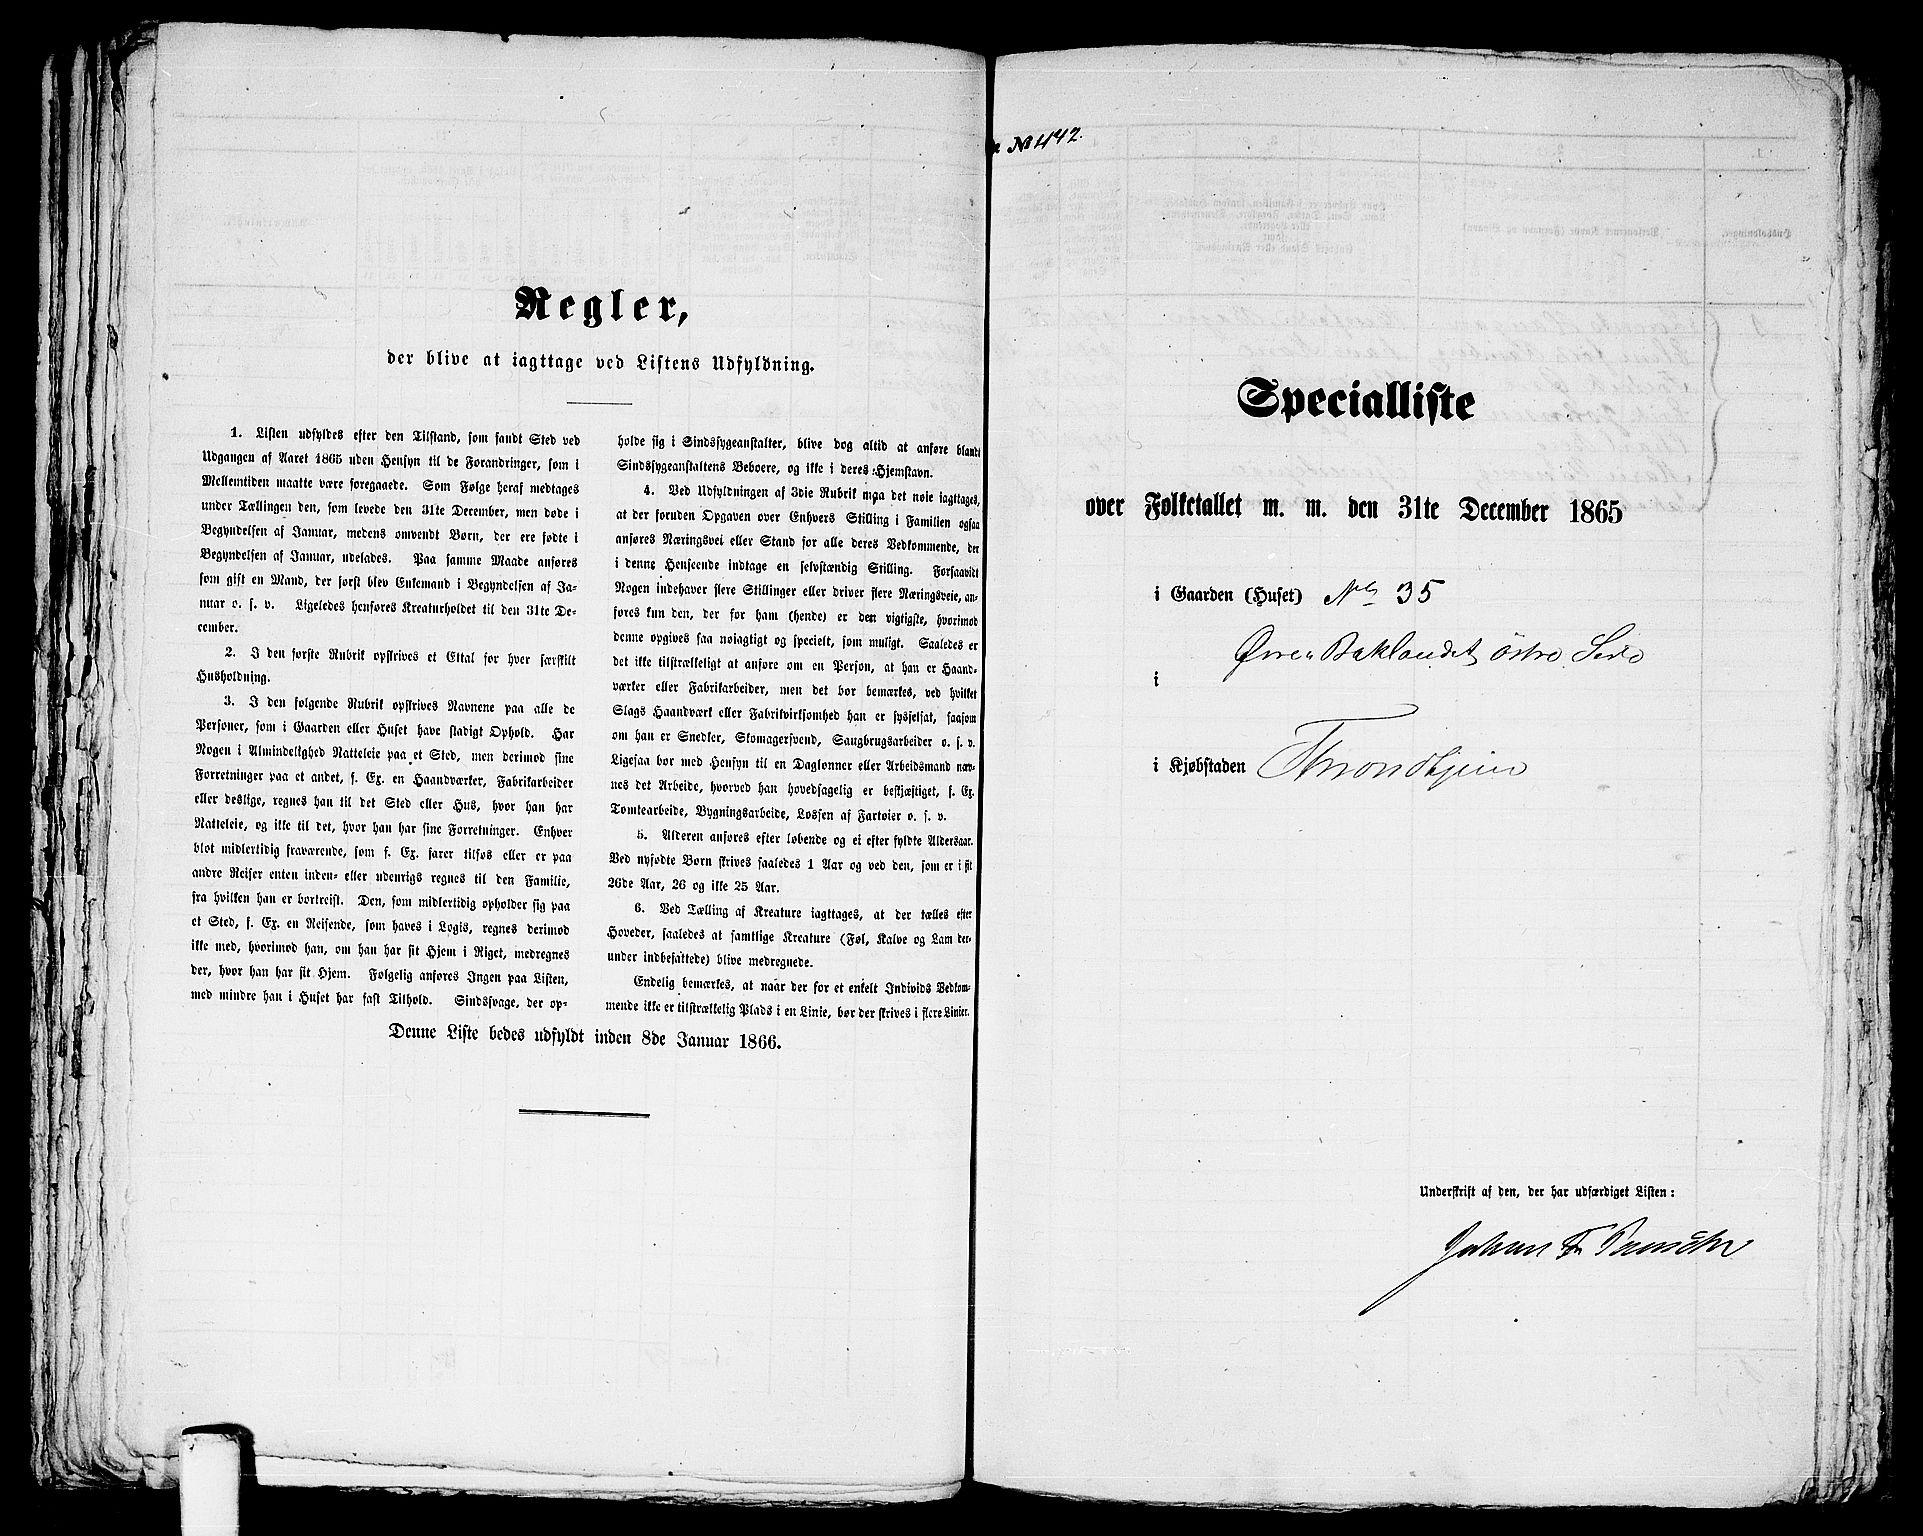 Regler,
der blive at iagttage ved Listens Udfyldning.
1. Listen udfyldes efter den Tilstand, som fandt Sted ved
Udgangen af Aaret 1865 uden Hensyn til de Forandringer, som i
Mellemtiden maatte være foregaaede. Som Følge heraf medtages
under Tællingen den, som levede den 31te December, men døde i
Begyndelsen af Januar, medens omvendt Børn, der ere fødte i
Begyndelsen af Januar, udelades. Paa samme Maade anføres
som gift en Mand, der først blev Enkemand i Begyndelsen af Ja-
nuar o. s. v. Ligeledes henføres Kreaturholdet til den 31te De-
cember.
2. I den første Rubrik opskrives et Ettal for hver særskilt
Husholdning.
3. I den følgende Rubrik opskrives Navnene paa alle de
Personer, som i Gaarden eller Huset have stadigt Ophold. Har
Nogen i Almindelighed Natteleie paa et Sted, men derimod sine
Forretninger paa et andet, f. Ex. en Haandværker, Fabrikarbeider
eller deslige, regnes han til det Sted eller Hus, hvor han har
Natteleie, og ikke til det, hvor han har sine Forretninger. Enhver
blot midlertidig fraværende, som f. Ex. farer tilsøs eller er paa
andre Reiser enten inden- eller udenrigs regnes til den Familie,
fra hvilken han er bortreist. Den, som midlertidig opholder sig paa
et Sted, f. Ex. en Reisende, som haves i Logis, regnes derimod
ikke med, hvorimod han, om han har sit Hjem i Riget, medregnes
der, hvor han har sit Hjem. Følgelig anføres Ingen paa Listen,
med mindre han i Huset har fast Tilhold. Sindssvage, der op-
holde sig i Sindssygeanstalter, blive dog altid at anføre blandt
Sindssygeanstaltens Beboere, og ikke i deres Hjemstavn.
4. Ved Udfyldningen af 3die Rubrik maa det nøie iagttages,
at der foruden Opgaven over Enhvers Stilling i Familien ogsaa
anføres Næringsvei eller Stand for alle deres Vedkommende, der
i denne Henseende indtage en selvstændig Stilling. Forsaavidt
Nogen indehaver flere Stillinger eller driver flere Næringsveie, an-
føres kun den, der for ham (hende) er den vigtigste, hvorimod
denne opgives saa nøiagtigt og specielt, som muligt. Saaledes er
det ikke tilstrækkeligt at anføre om en Person, at han er Haand-
værker eller Fabrikarbeider, men det bør bemærkes, ved hvilket
Slags Haandværk eller Fabrikvirksomhed han er sysselsat, saasom
om han er Snedker, Skomagersvend, Saugbrugsarbeider o. s. v.
Ligesaa bør med Hensyn til en Dagløner eller Arbeidsmand næv-
nes det Arbeide, hvorved han hovedsagelig er beskjæftiget, f. Ex.
Tomtearbeide, Bygningsarbeide, Lossen af Fartøier o. s. v.
5. Alderen anføres efter løbende og ei efter fyldte Aldersaar.
Ved nyfødte Børn skrives saaledes 1 Aar og ved den, som er i sit
26de Aar, 26 og ikke 25 Aar.
6. Ved Tælling af Kreature iagttages, at der tælles efter
Hoveder, saaledes at samtlige Kreature (Føl, Kalve og Lam der-
under indbefattede) blive medregnede.
Endelig bemærkes, at naar der for et enkelt Individs Vedkom-
mende ikke er tilstrækkelig Plads i en Linie, bør der skrives i flere Linier.
Denne Liste bedes udfyldt inden 8de Januar 1866.
№ 442.
Specialliste
over Folketallet m. m. den 31te December 1865
i Gaarden (Huset) No 35
Øvre Baklandet østre Side
i
i Kjøbstaden Throndhjem
Underskrift af den, der har udfærdiget Listen:
Johan Fr